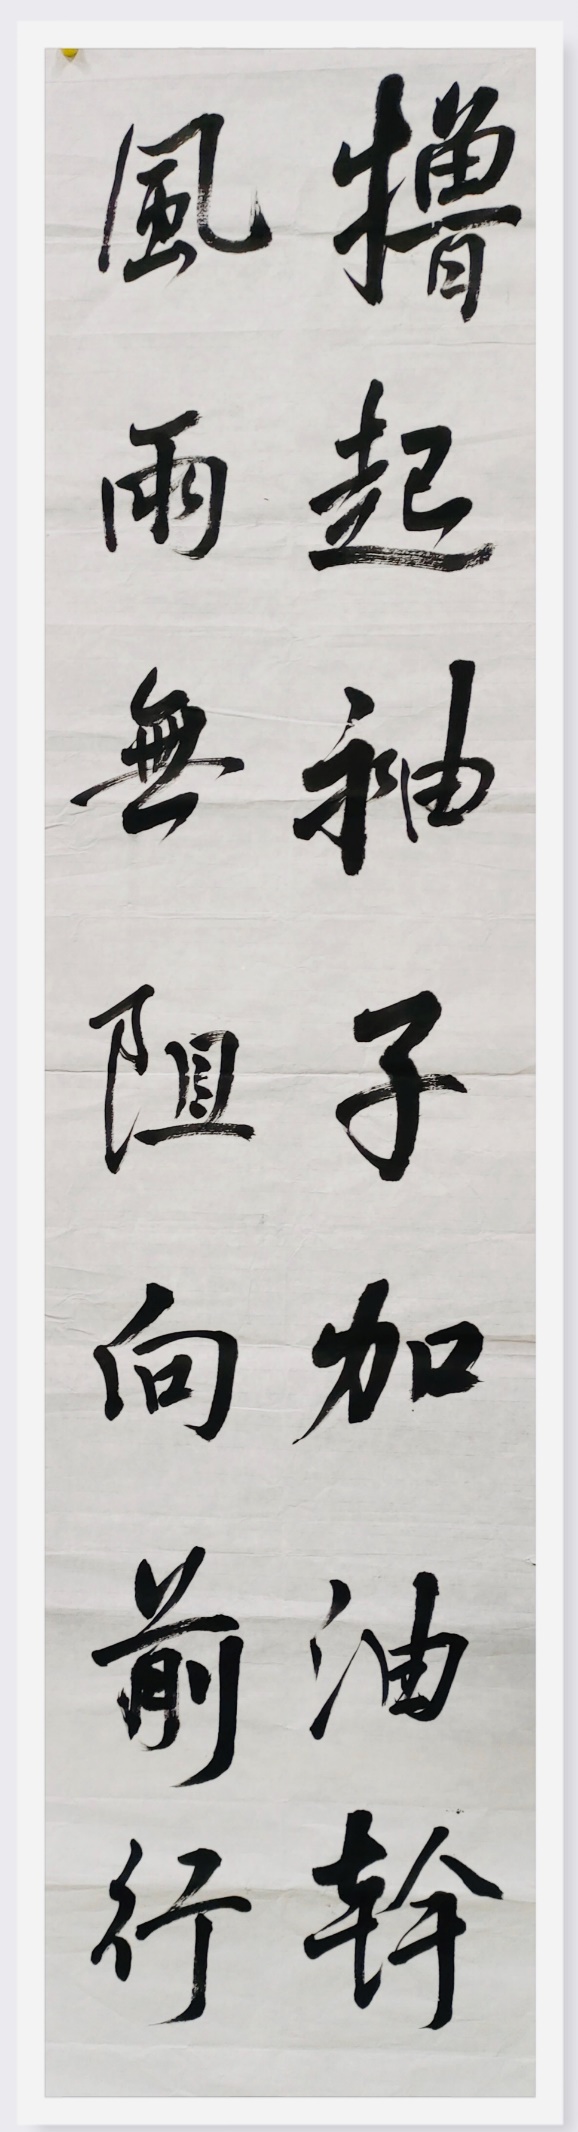 擼起袖子加油幹
風雨無阻向前行